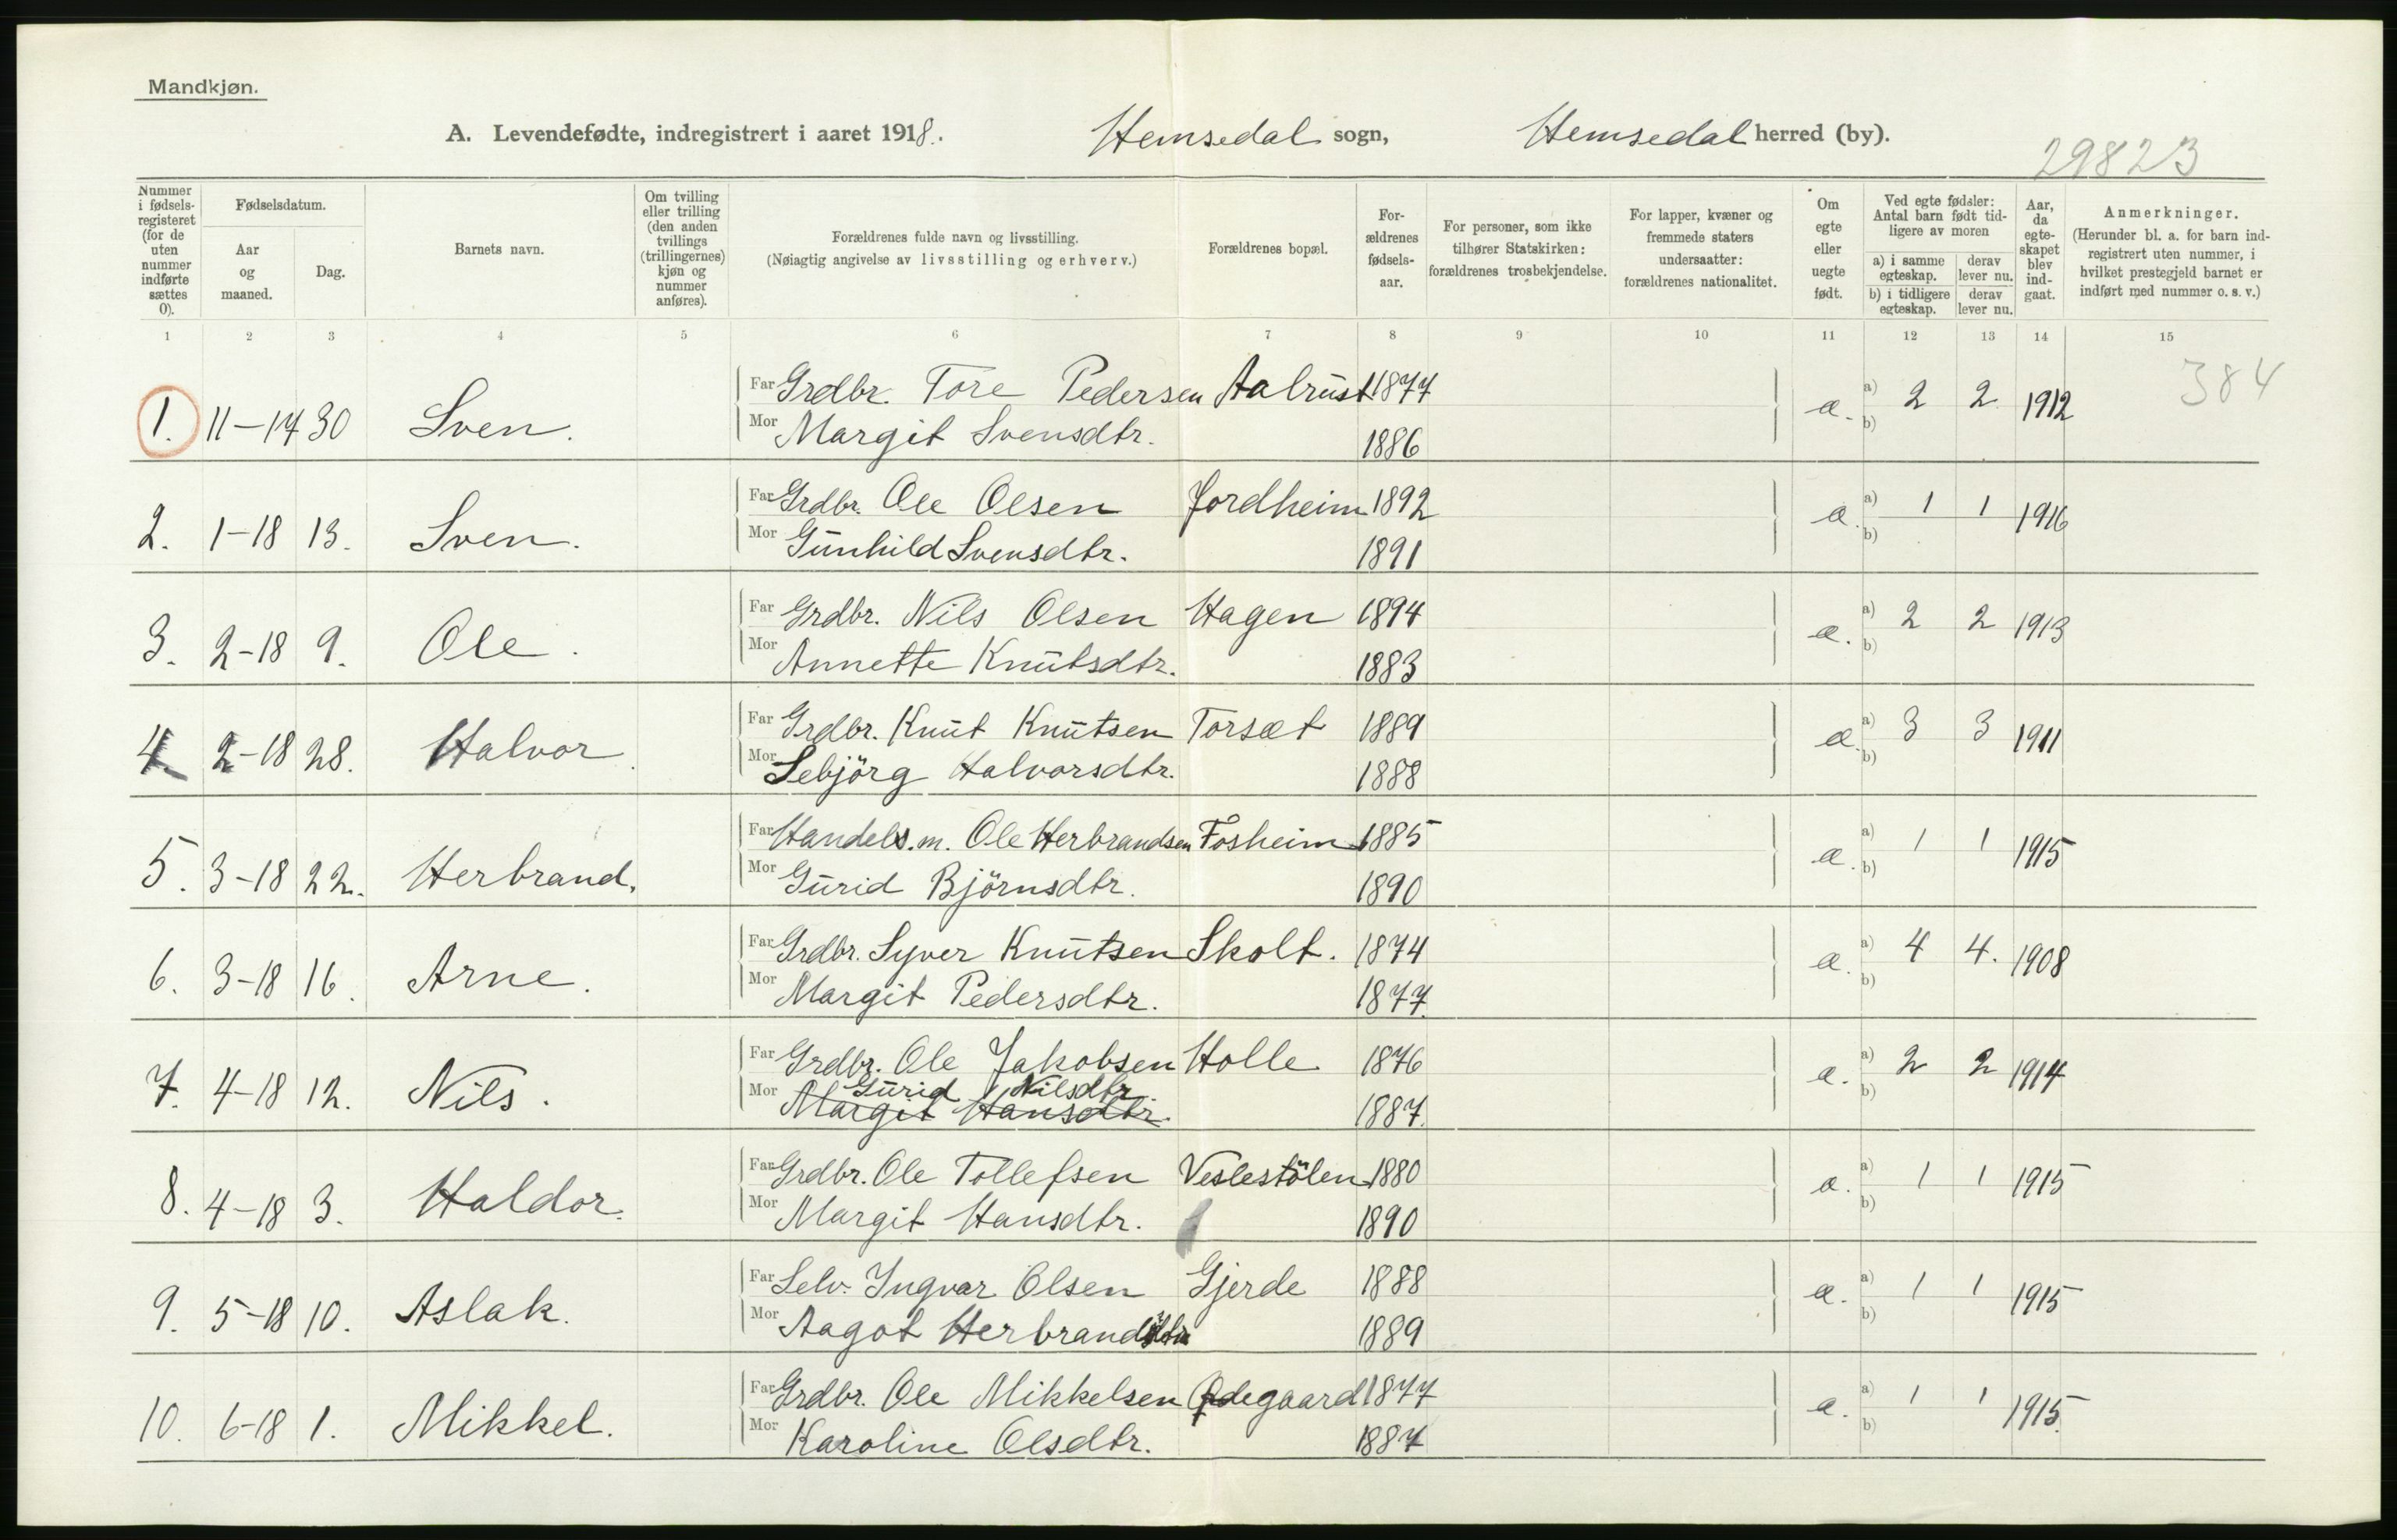 Mandkjøn.
A. Levendefødte, indregistrert i aaret 1918. Hemsedal sogn, Hemsedal herred (by).
29823
Nummer i fødsels-registeret (for de uten nummer indførte sættes 0).
Fødselsdatum.
Aar og maaned.
Dag.
Barnets navn.
Om tvilling eller trilling (den anden tvillings (trillingernes) kjøn og nummer anføres).
Forældrenes fulde navn og livsstilling.
(Nøiagtig angivelse av livsstilling og erhverv.)
Forældrenes bopæl.
For-ældrenes fødsels-aar.
For personer, som ikke tilhører Statskirken: forældrenes trosbekjendelse.
For lapper, kvæner og fremmede staters undersaatter: forældrenes nationalitet.
Om egte eller uegte født.
Ved egte fødsler: Antal barn født tid-ligere av moren
a) i samme egteskap. derav lever nu.
b) i tidligere egteskap. derav lever nu.
Aar, da egte-skapet blev ind-gaat.
Anmerkninger.
(Herunder bl. a. for barn ind-registrert uten nummer, i hvilket prestegjeld barnet er indført med nummer o. s. v.)
1 2 3 4 5 6 7 8 9 10 11 12 13 14 15
384
Far Grdbr. Tore Pedersen Aalrust 1877
1. 11-17 30 Sven. a. a) 2 2 1912
Mor Margit Svensdtr. 1886 b)
Far Grdbr. Ole Olsen Jordheim 1892
2. 1-18 13. Sven. a. a) 1 1 1916
Mor Gunhild Svensdtr. 1891 b)
Far Grdbr. Nils Olsen Hagen 1894
3. 2-18 9. Ole. a. a) 2 2 1913
Mor Annette Knutsdtr. 1883 b)
Far Grdbr. Knut Knutsen Torsæt 1889
4. 2-18 28. Halvor. a. a) 3 3 1911
Mor Sebjörg Halvorsdtr. 1888 b)
Far Handels.m. Ole Herbrandsen Fosheim 1885
5. 3-18 22. Herbrand. a. a) 1 1 1915
Mor Gurid Björnsdtr. 1890 b)
Far Grdbr. Syver Knutsen Skolt. 1874
6. 3-18 16. Arne. a. a) 4 4. 1908
Mor Margit Pedersdtr. 1877. b)
Far Grdbr. Ole Jakobsen Holle 1876
7. 4-18 12. Nils. a. a) 2 2 1914
Gurid Nilsdtr.
Mor Margit Hansdtr. 1887. b)
Far Grdbr. Ole Tollefsen Veslestölen 1880
8. 4-18 3. Haldor. a. a) 1 1 1915
Mor Margit Hansdtr. 1890 b)
Far Selv. Ingvar Olsen Gjerde 1888
9. 5-18 10. Aslak. a. a) 1 1 1915
Mor Aagot Herbrandsdtr 1889 b)
Far Grdbr. Ole Mikkelsen Ødegaard 1877
10. 6-18 1. Mikkel. a. a) 1 1 1915.
Mor Karoline Olsdtr. 1887 b)